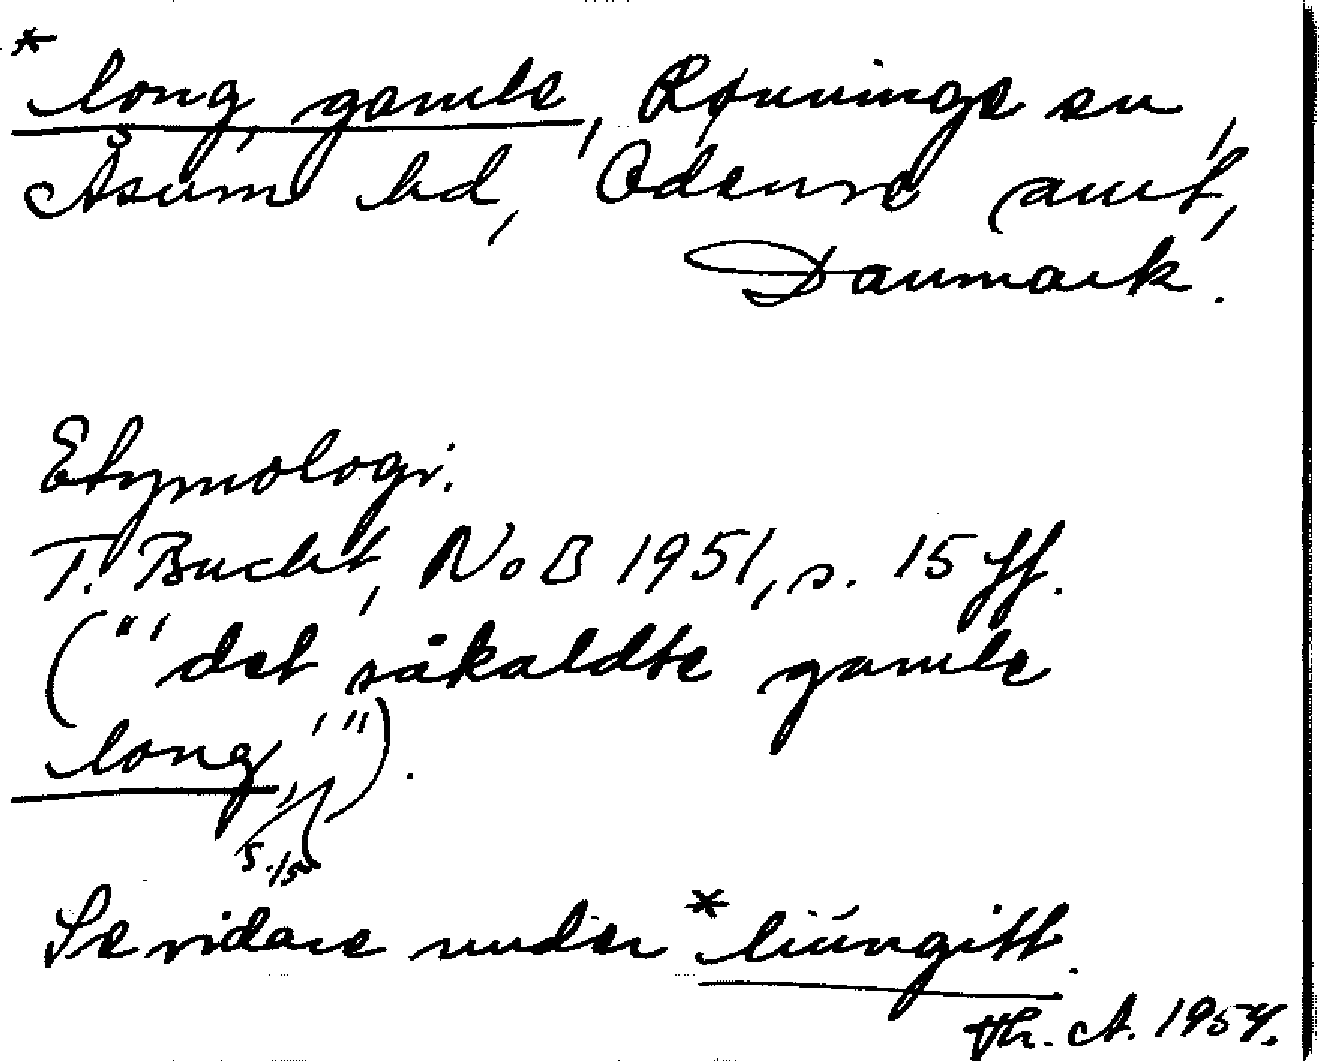 *
long, gamle, Rønninge sn,
Åsum hd, Odense amt,
Danmark.
Etymologi:
T. Bucht, NoB 1951, s. 15 ff.
("'det såkaldte gamle
long'").
s. 15
Se vidare under *liúngitt.
Th. A. 1954.